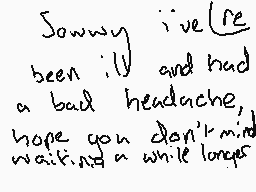 Sowwy i've (re
been ill and had
a bad headache,
hope you don't mind
waiting a while longer